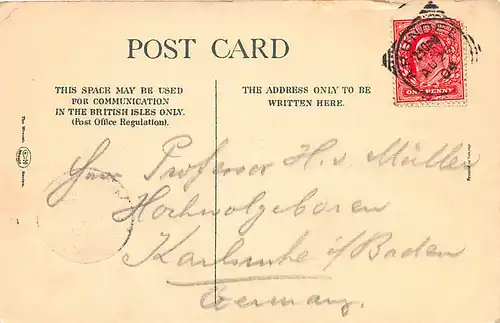 POST CARD
THIS SPACE MAY BE USED
FOR COMMUNICATION
IN THE BRITISH ISLES ONLY.
(Post Office Regulation).
THE ADDRESS ONLY TO BE
WRITTEN HERE.
ONE PENNY
ARUNDEL
04
The Wrench Series.
Printed in Saxony
Herr Professor H. v. Müller
Hochwolgeboren
Karlsruhe i/Baden
Germany.